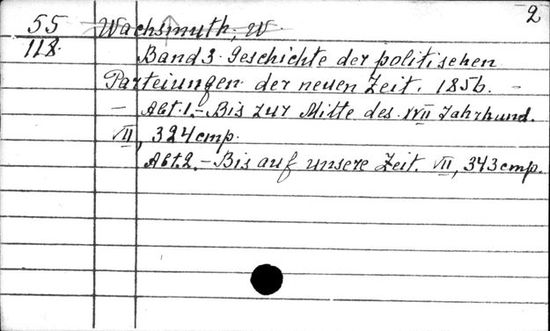 2
55 Wachsmuth, W
118. Band 3. Geschichte der politischen
Parteiungen der neuen Zeit. 1856. –
– Abt. 1. – Bis zur Mitte des XVII Jahrhund.
VII, 324 стр.
Abt. 2. – Bis auf unsere Zeit. VII, 343 стр.